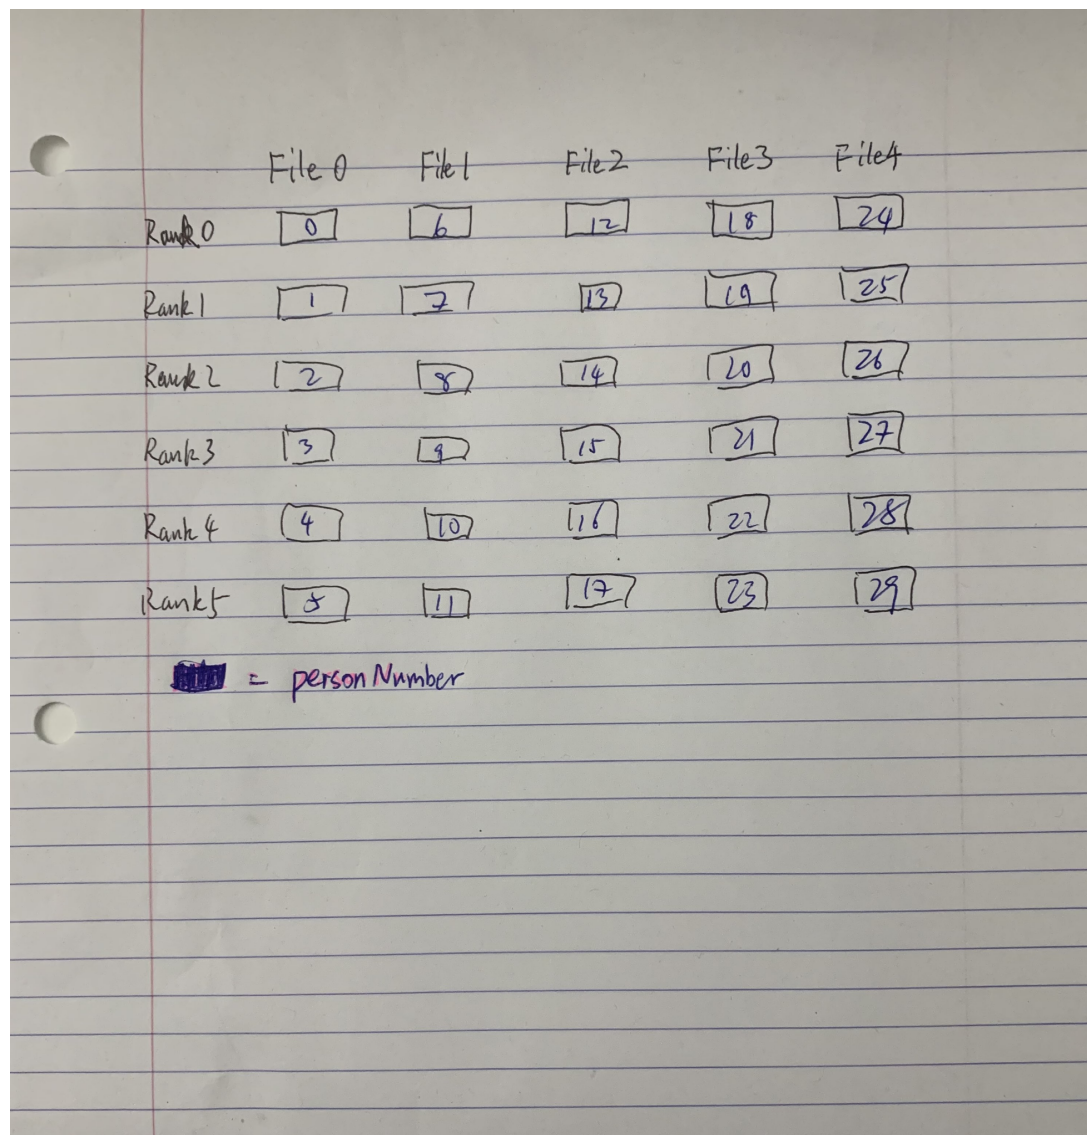 File 0 File 1 File 2 File 3 File 4
Rank 0 0 6 12 18 24
Rank 1 1 7 13 19 25
Rank 2 2 8 14 20 26
Rank 3 3 9 15 21 27
Rank 4 4 10 16 22 28
Rank 5 5 11 17 23 29
= personNumber